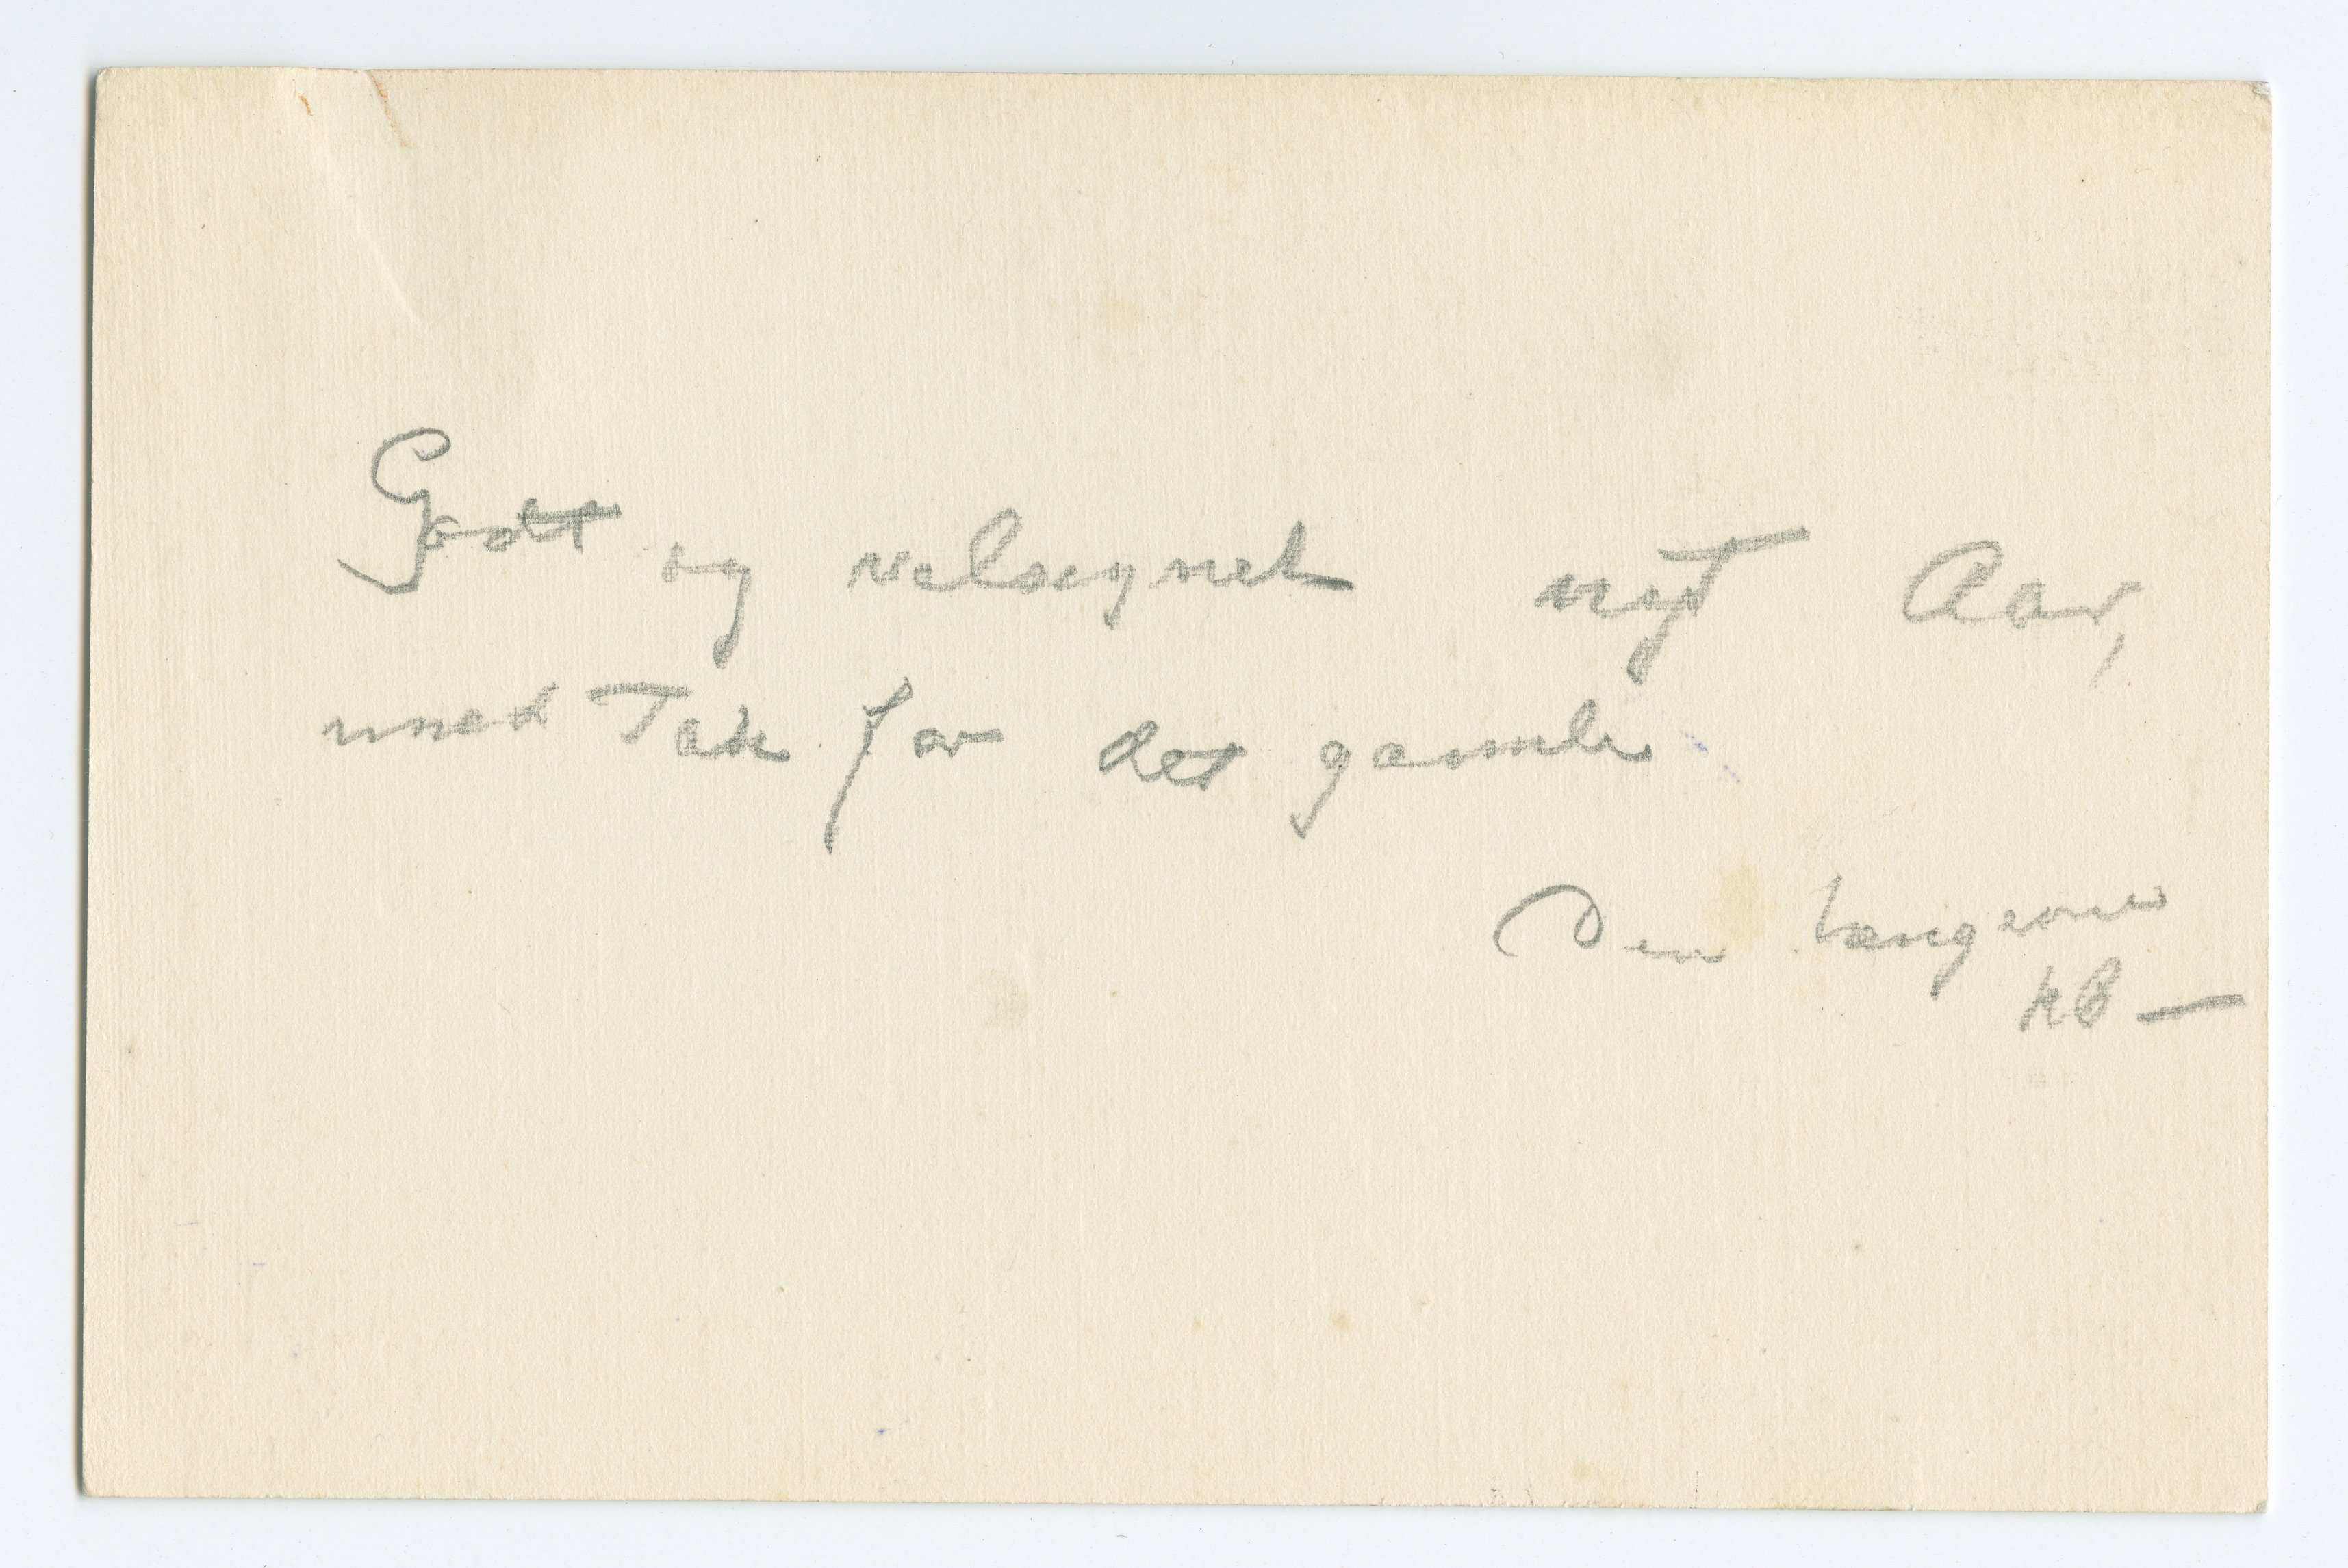 Godt og velsegnet nyt Aar,
med Tak for det gamle
Din hengivne
KB —